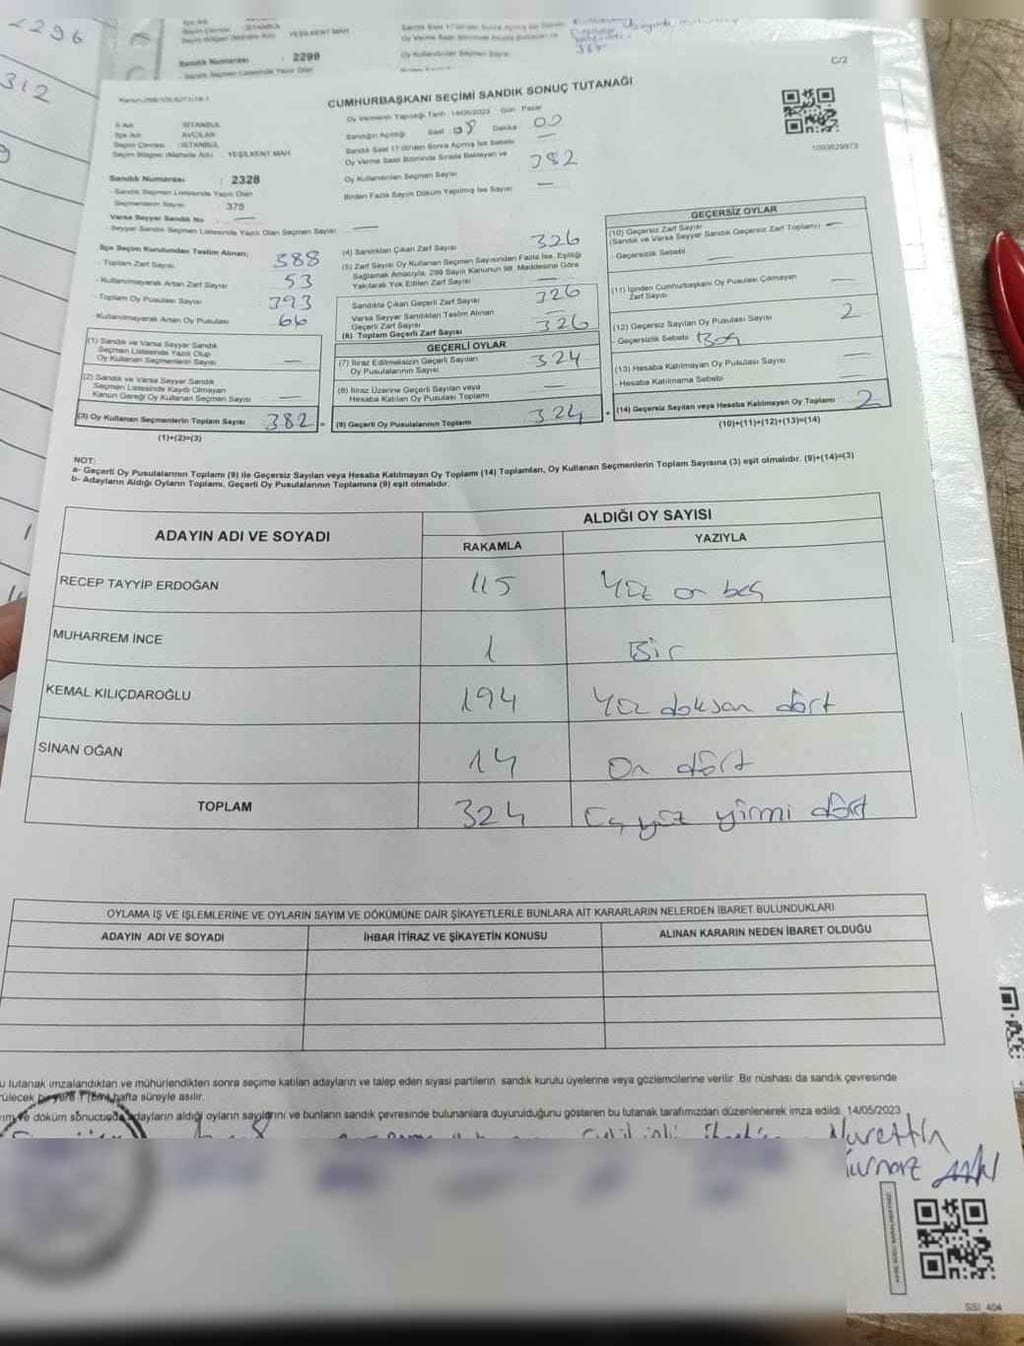 2296
312
YEŞİLKENT MAH
Sandık Numarası : 2299
C/2
CUMHURBAŞKANI SEÇİMİ SANDIK SONUÇ TUTANAĞI
Oy Vermenin Yapıldığı Tarih 14/05/2023 Gün Pazar
İl Adı İSTANBUL
İlçe Adı AVCILAR
Seçim Çevresi İSTANBUL
Seçim Bölgesi (Mahalle Adı) YEŞİLKENT MAH
Sandığın Açıldığı Saat 08 Dakika 00
Sandık Saat 17:00'den Sonra Açılmış İse Sebebi —
Oy Verme Saati Bitiminde Sırada Bekleyen ve
Oy Kullandırılan Seçmen Sayısı 382
Birden Fazla Sayım Döküm Yapılmış İse Sayısı —
1093029973
Sandık Numarası : 2328
- Sandık Seçmen Listesinde Yazılı Olan
Seçmenlerin Sayısı 375
Varsa Seyyar Sandık No —
- Seyyar Sandık Seçmen Listesinde Yazılı Olan Seçmen Sayısı —
İlçe Seçim Kurulundan Teslim Alınan;
- Toplam Zarf Sayısı 388
- Kullanılmayarak Artan Zarf Sayısı 53
- Toplam Oy Pusulası Sayısı 393
- Kullanılmayarak Artan Oy Pusulası 66
(1) Sandık ve Varsa Seyyar Sandık
Seçmen Listesinde Yazılı Olup
Oy Kullanan Seçmenlerin Sayısı —
(2) Sandık ve Varsa Seyyar Sandık
Seçmen Listesinde Kayıtlı Olmayan
Kanun Gereği Oy Kullanan Seçmen Sayısı —
(3) Oy Kullanan Seçmenlerin Toplam Sayısı 382
(1)+(2)=(3)
(4) Sandıktan Çıkan Zarf Sayısı 326
(5) Zarf Sayısı Oy Kullanan Seçmen Sayısından Fazla İse, Eşitliği
Sağlamak Amacıyla, 298 Sayılı Kanunun 98. Maddesine Göre
Yakılarak Yok Edilen Zarf Sayısı —
Sandıkta Çıkan Geçerli Zarf Sayısı 326
Varsa Seyyar Sandıktan Teslim Alınan
Geçerli Zarf Sayısı —
(6) Toplam Geçerli Zarf Sayısı 326
GEÇERLİ OYLAR
(7) İtiraz Edilmeksizin Geçerli Sayılan
Oy Pusulalarının Sayısı 324
(8) İtiraz Üzerine Geçerli Sayılan veya
Hesaba Katılan Oy Pusulası Toplamı —
(9) Geçerli Oy Pusulalarının Toplamı 324
GEÇERSİZ OYLAR
(10) Geçersiz Zarf Sayısı
(Sandık ve Varsa Seyyar Sandık Geçersiz Zarf Toplamı) —
- Geçersizlik Sebebi —
(11) İçinden Cumhurbaşkanı Oy Pusulası Çıkmayan
Zarf Sayısı —
(12) Geçersiz Sayılan Oy Pusulası Sayısı 2
- Geçersizlik Sebebi Boş
(13) Hesaba Katılmayan Oy Pusulası Sayısı —
- Hesaba Katılmama Sebebi —
(14) Geçersiz Sayılan veya Hesaba Katılmayan Oy Toplamı 2
(10)+(11)+(12)+(13)=(14)
NOT:
a- Geçerli Oy Pusulalarının Toplamı (9) ile Geçersiz Sayılan veya Hesaba Katılmayan Oy Toplamı (14) Toplamları, Oy Kullanan Seçmenlerin Toplam Sayısına (3) eşit olmalıdır. (9)+(14)=(3)
b- Adayların Aldığı Oyların Toplamı, Geçerli Oy Pusulalarının Toplamına (9) eşit olmalıdır.
ADAYIN ADI VE SOYADI ALDIĞI OY SAYISI
RAKAMLA YAZIYLA
RECEP TAYYİP ERDOĞAN 115 Yüz on beş
MUHARREM İNCE 1 Bir
KEMAL KILIÇDAROĞLU 194 Yüz doksan dört
SİNAN OĞAN 14 On dört
TOPLAM 324 Üç yüz yirmi dört
OYLAMA İŞ VE İŞLEMLERİNE VE OYLARIN SAYIM VE DÖKÜMÜNE DAİR ŞİKAYETLERLE BUNLARA AİT KARARLARIN NELERDEN İBARET BULUNDUKLARI
ADAYIN ADI VE SOYADI İHBAR İTİRAZ VE ŞİKAYETİN KONUSU ALINAN KARARIN NEDEN İBARET OLDUĞU
u tutanak imzalandıktan ve mühürlendikten sonra seçime katılan adayların ve talep eden siyasi partilerin sandık kurulu üyelerine veya gözlemcilerine verilir. Bir nüshası da sandık çevresinde
hafta süreyle asılır.
ım ve döküm sonucunda adayların aldığı oyların sayılarını ve bunların sandık çevresinde bulunanlara duyurulduğunu gösteren bu tutanak tarafımızdan düzenlenerek imza edildi. 14/05/2023
Nurettin
SSI_404